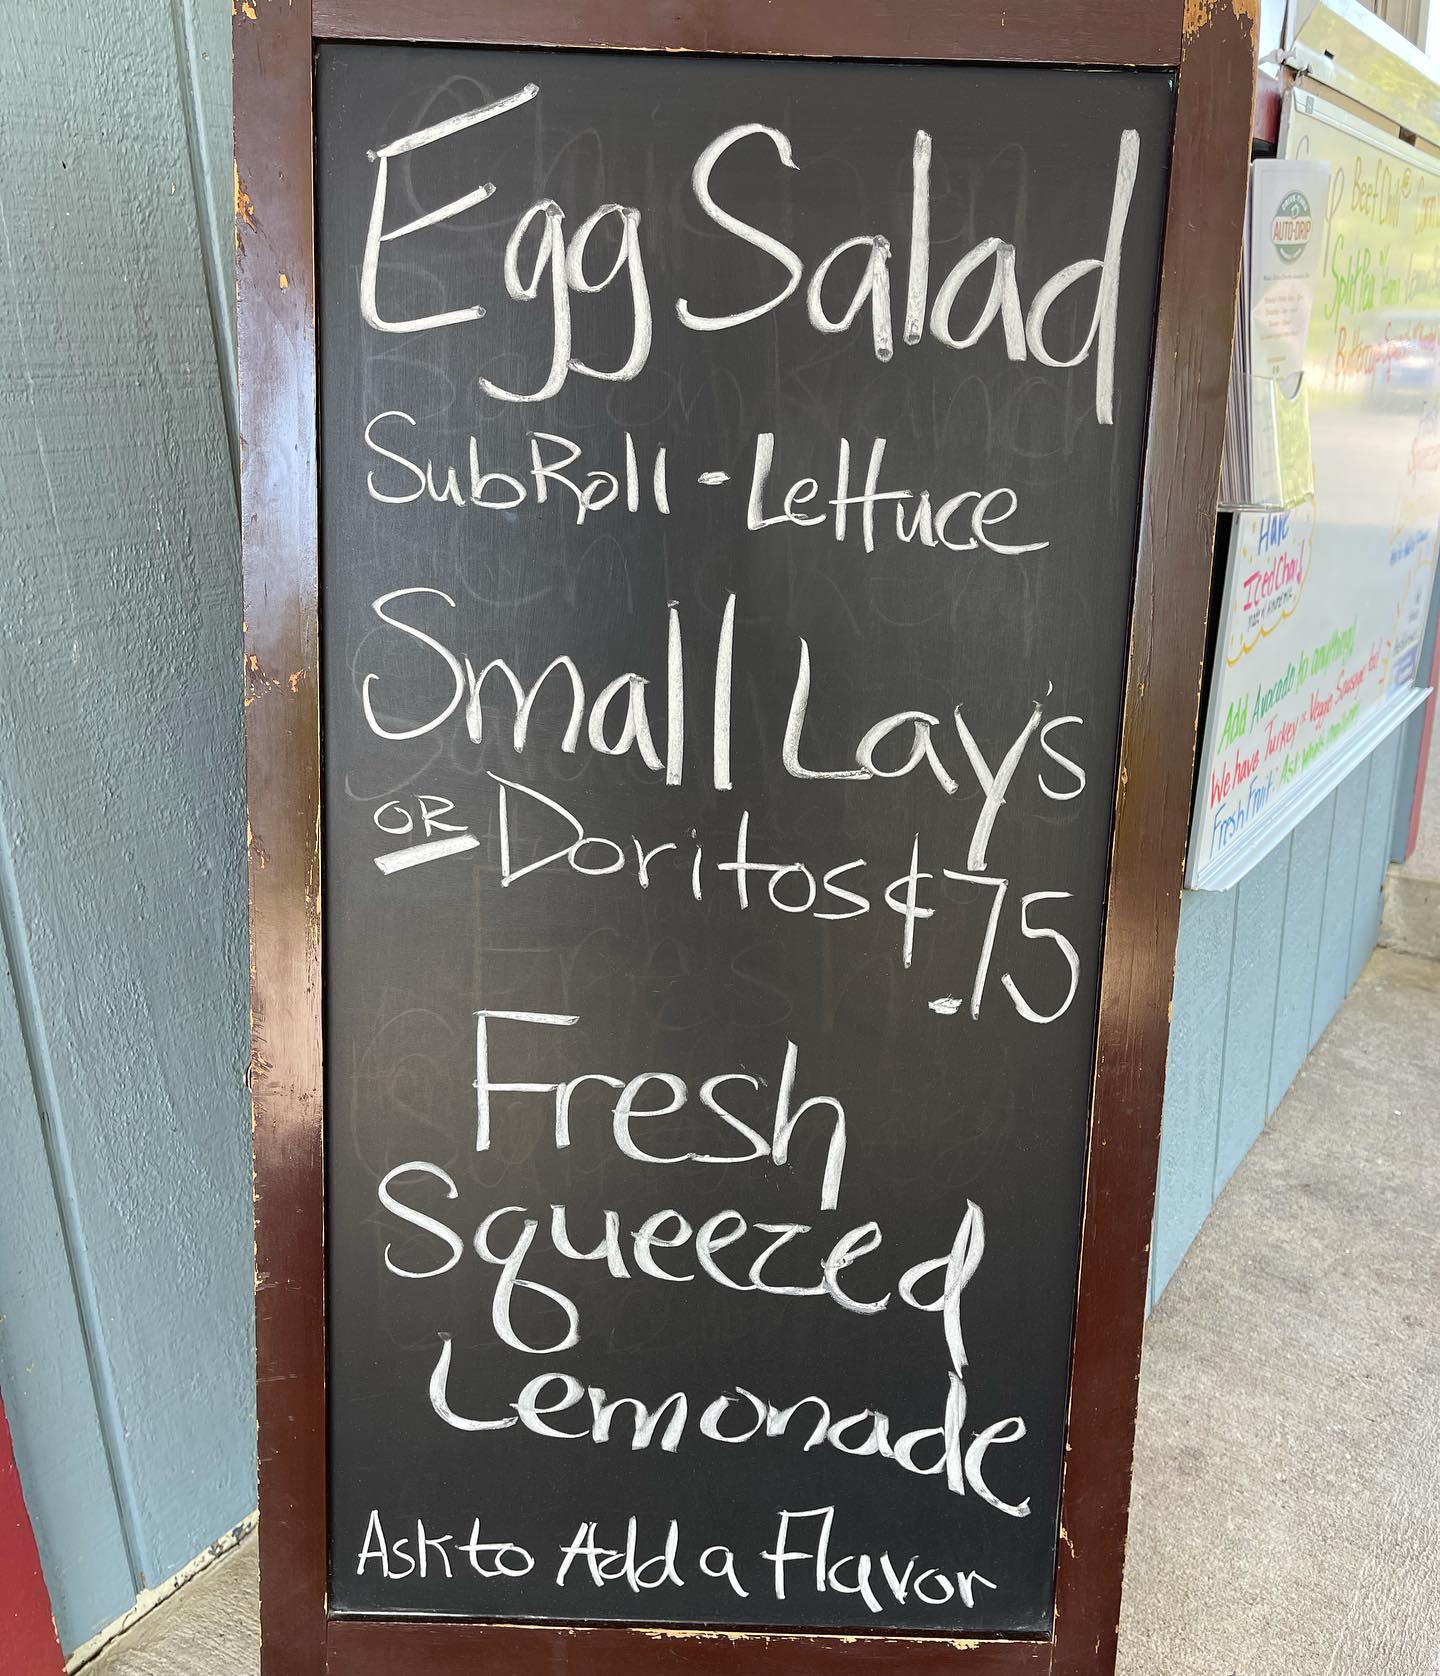 Egg Salad
Sub Roll - Lettuce
Small Lay's
OR Doritos ¢.75
Fresh
Squeezed
Lemonade
Ask to Add a Flavor
AUTO-DRIP
Beef Chili
Split Pea
Have
Iced Chai!
Add Avocado to anything!
We have Turkey or Veggie Sausage
Fresh Fruit: Ask